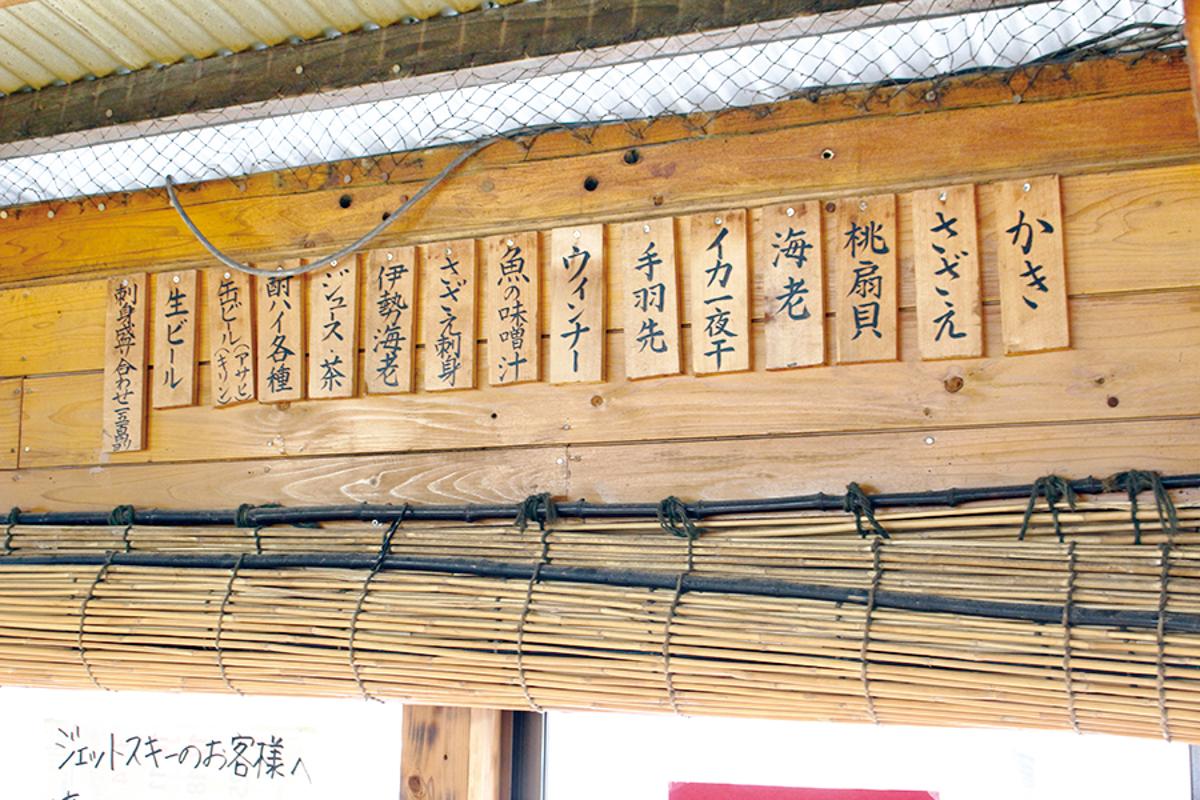 かき
さざえ
桃扇貝
海老
イカ一夜干
手羽先
ウィンナー
魚の味噌汁
さざえ刺身
伊勢海老
ジュース・茶
酎ハイ各種
缶ビール(アサヒ)(キリン)
生ビール
刺身盛り合わせ
ジェットスキーのお客様へ